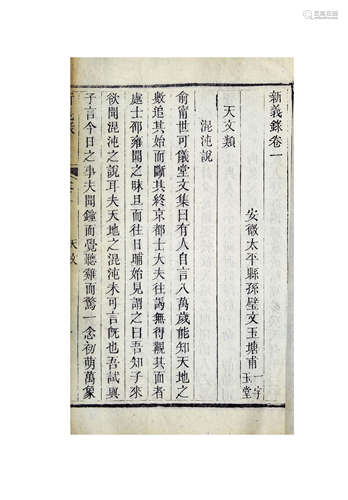 新義錄卷一
安徽太平縣孫璧文玉塘甫一字玉堂
天文類
混沌說
俞甯世可儀堂文集曰有人自言八萬歲能知天地之
數追其始而斷其終京都士大夫往謁無得觀其面者
處士邵雍聞之昧旦而往日晡始見謂之曰吾知子來
欲聞混沌之說耳夫天地之混沌未可言旣也吾試與
子言今日之事夫聞鐘而覺聽雞而驚一念初萌萬象
天文